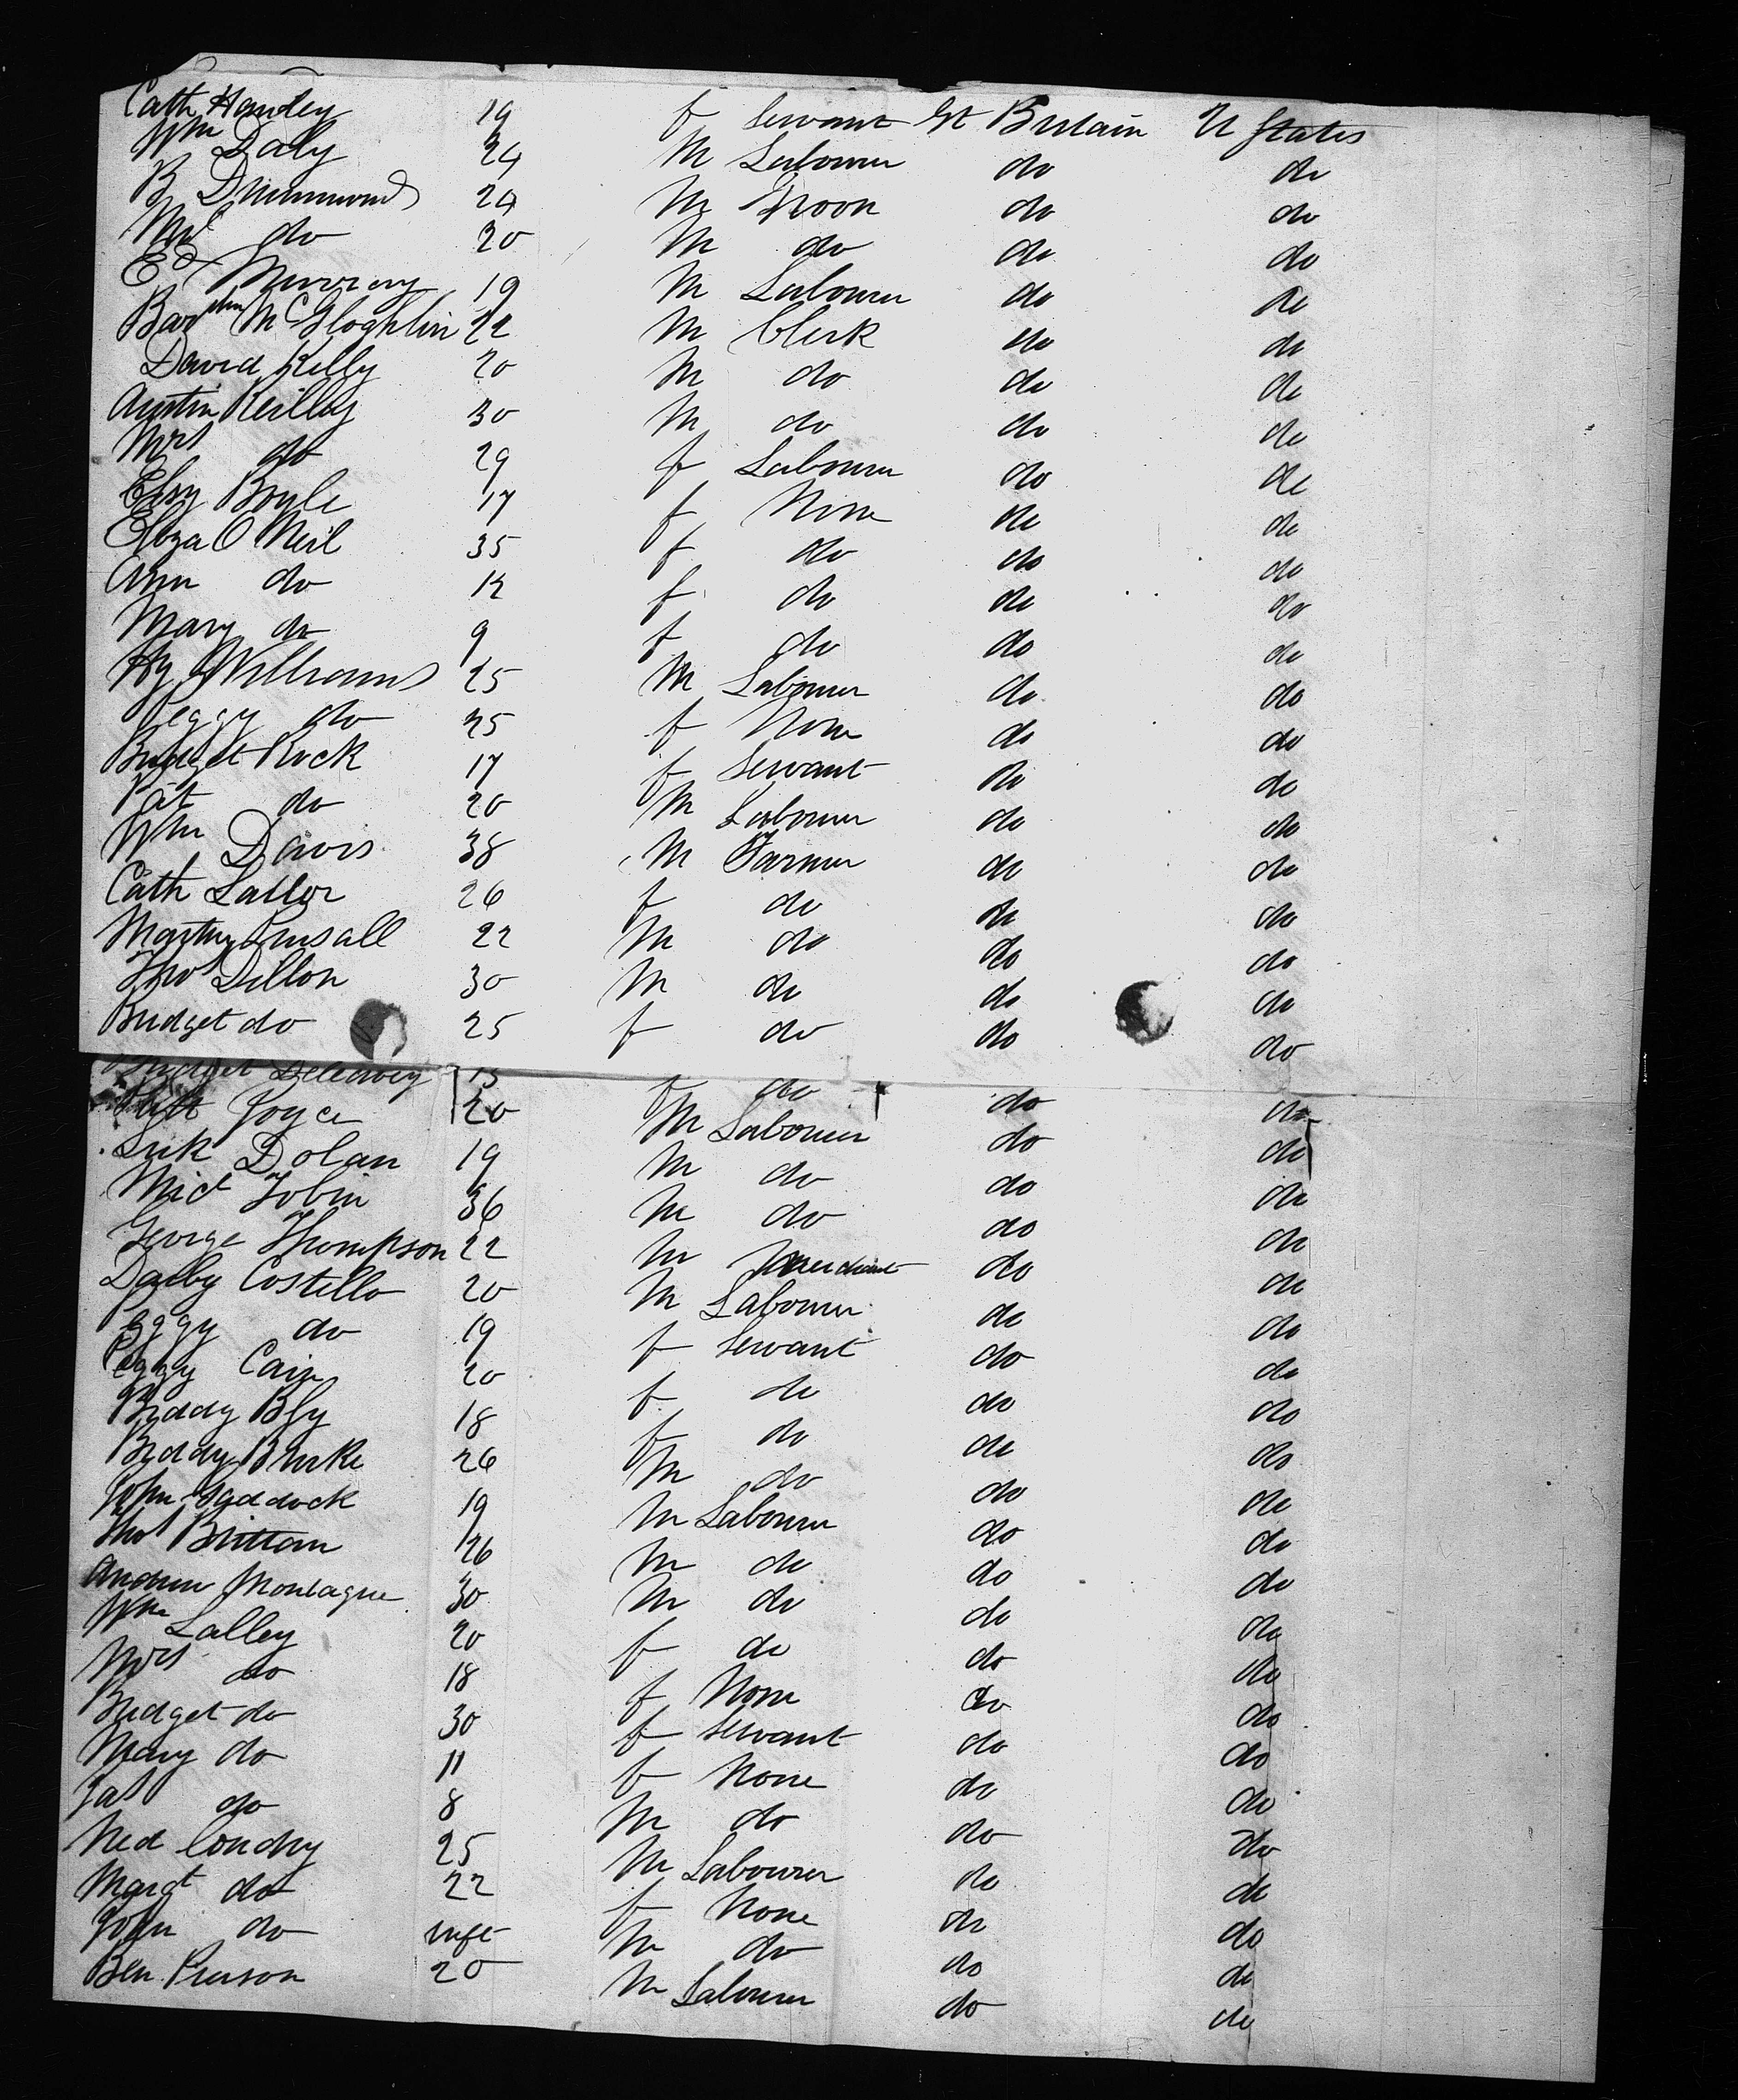 Cath Hawley 19 f Servant Gt Britain U States
Wm Daly 24 M Labourer do do
B Drummond 24 M do do
Ml do 20 M do do do
Ed Murray 19 M Labourer do do
Barthw McGloghlin 22 M Clerk do do
David Kelly 20 M do do do
Austin Reilly 30 M do do do
Mrs do 29 f Labourer do do
Elsy Boyle 17 f None do do
Eliza O Neil 35 f do do do
Ann do 12 f do do do
Mary do 9 f do do do
Hy Williams 25 M Labourer do do
Peggy do 25 f None do do
Bridget Rock 17 f Servant do do
Pat do 20 M Labourer do do
Wm Davis 38 M Farmer do do
Cath Lallor 26 f do do do
22 M do do do
Thos Dillon 30 M do do do
Bridget do 25 f do do do
Bridget 15 f do do do
Joyce 20 M Labourer do do
Dolan 19 M do do do
Micl Tobin 36 M do do do
George Thompson 22 M Merchant do do
Darby Costello 20 M Labourer do do
Peggy do 19 f Servant do do
Peggy Cain 20 f do do do
Biddy Bly 18 f do do do
Biddy Burke 26 M do do do
John 19 M Labourer do do
Thos Brittan 26 M do do do
Andrew Montague 30 M do do do
Wm Lalley 20 f do do do
Mrs do 18 f None do do
Bridget do 30 f Servant do do
Mary do 11 f None do do
Jas do 8 M do do do
Ned Condry 25 M Labourer do do
Margt do 22 f None do do
John do inft M do do do
Ben Pearson 20 M Labourer do do